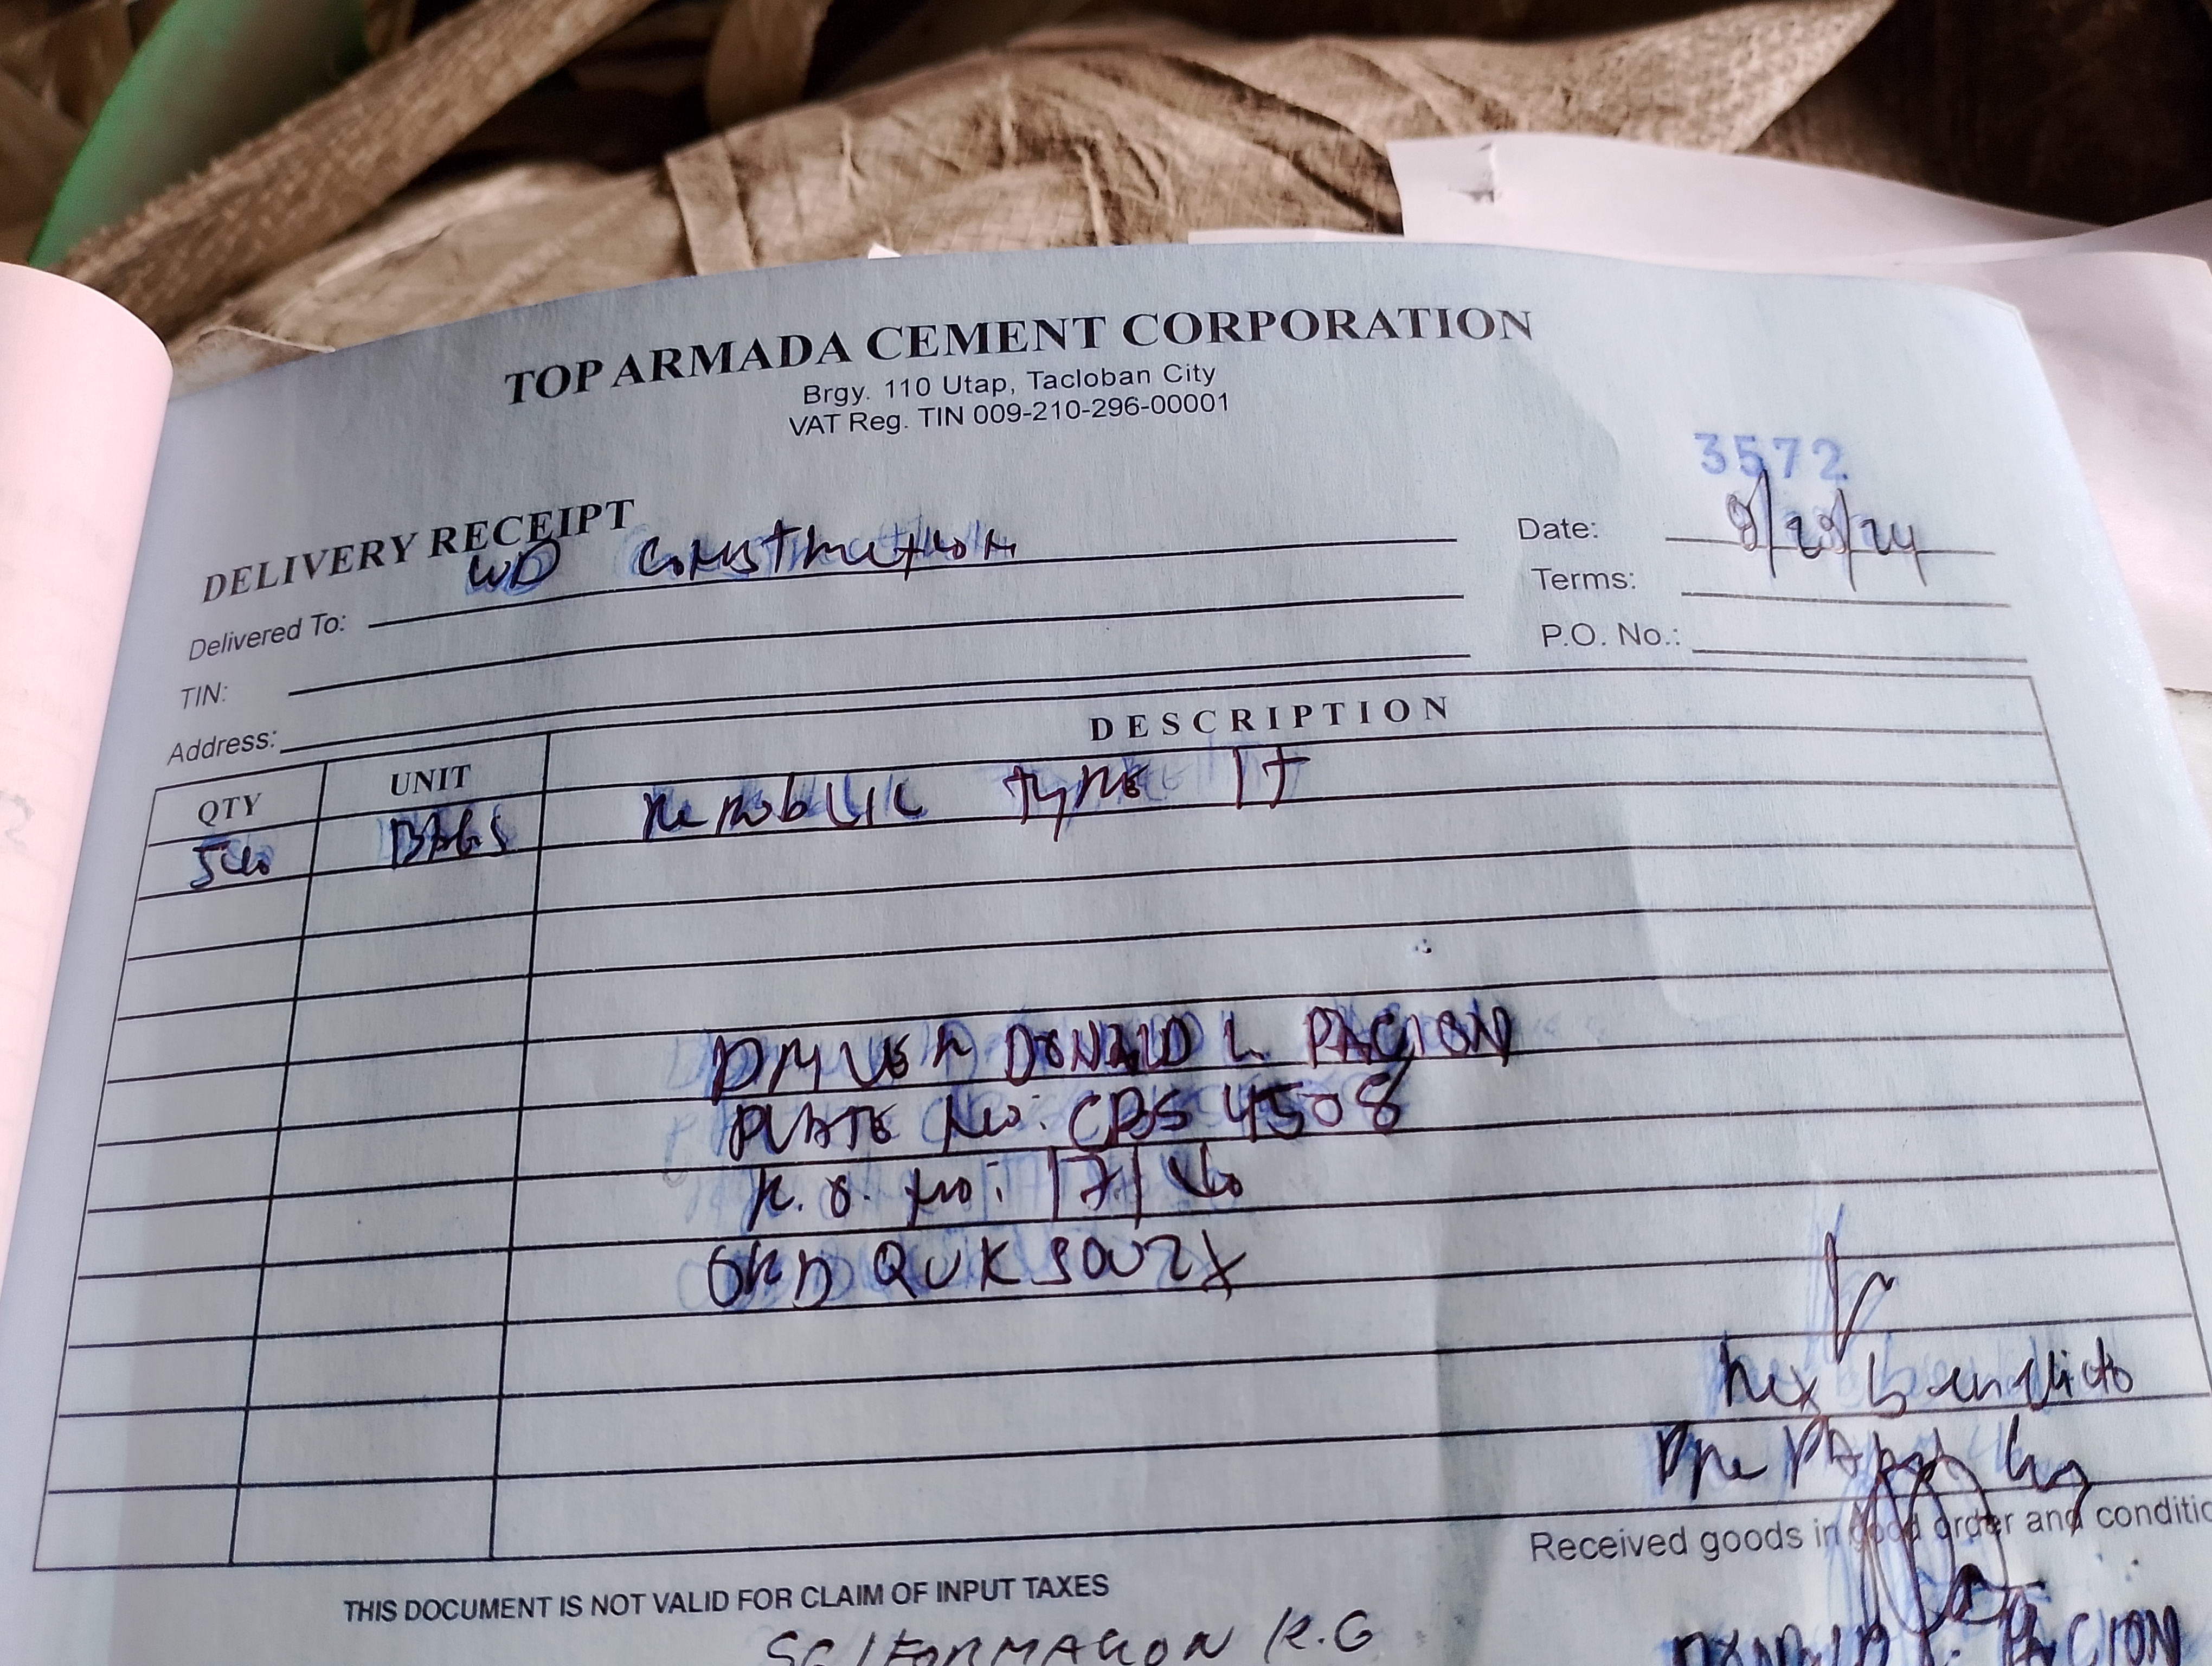 TOP ARMADA CEMENT CORPORATION
Brgy. 110 Utap, Tacloban City
VAT Reg. TIN 009-210-296-00001
3572
DELIVERY RECEIPT
Delivered To: WD Construction
Date: 9/29/24
TIN:
Terms:
Address:
P.O. No.:
QTY UNIT DESCRIPTION
500 BAGS Republic type 1T
DRIVER DONALD L. PACION
PLATE No: CBS 4508
R.O. No:
Rex Benedicto
Received goods in good order and conditio
THIS DOCUMENT IS NOT VALID FOR CLAIM OF INPUT TAXES
R.G
PACION